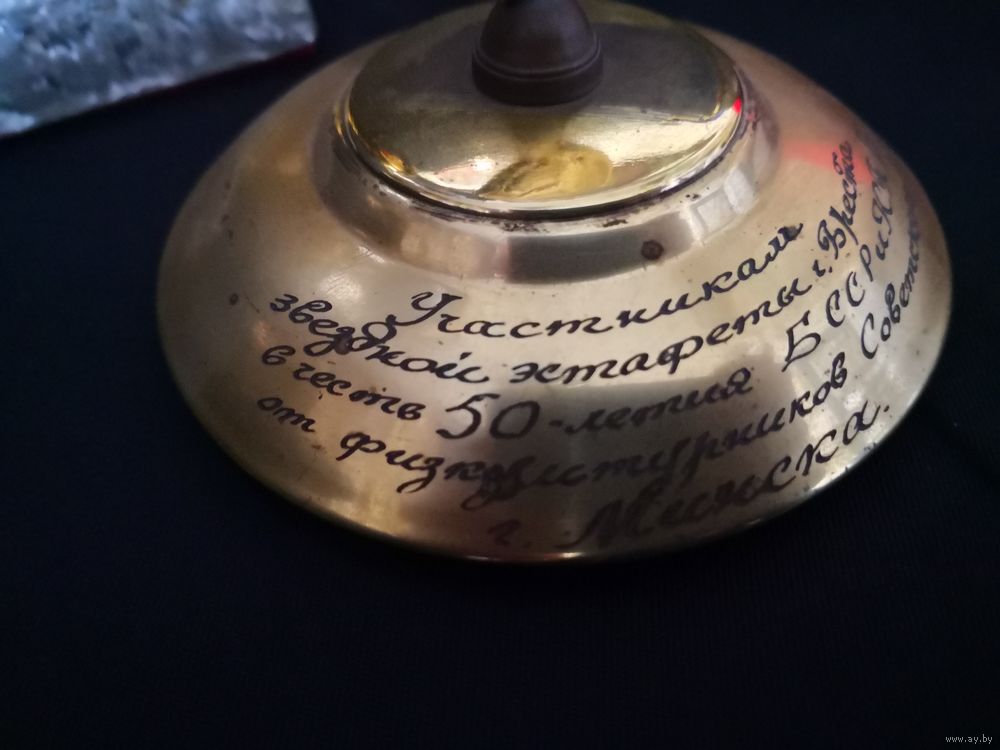 Участникам
звездной эстафеты г. Бреста
в честь 50-летия БССР и
от физкультурников
г. Минска.
www.ay.by